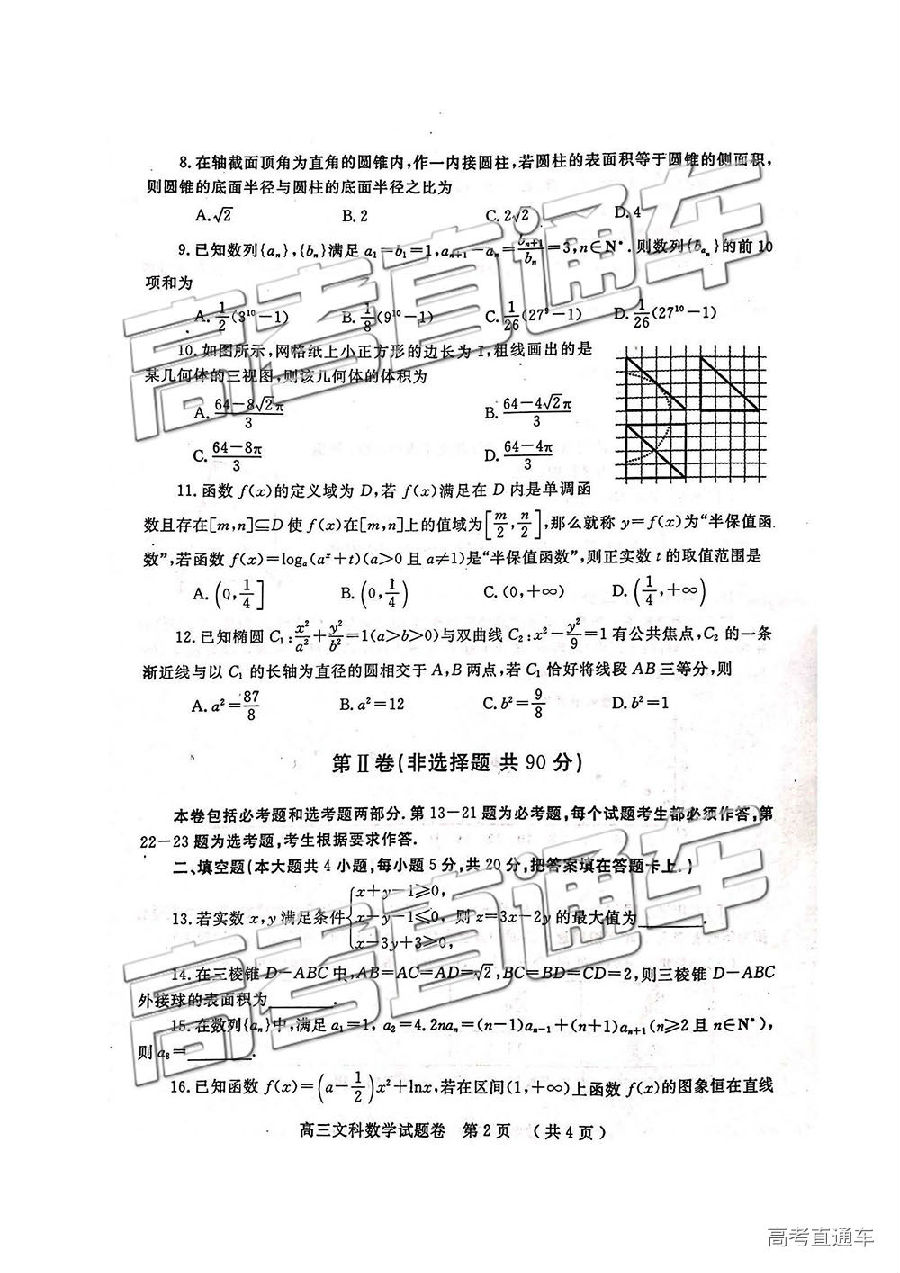 8.在轴截面顶角为直角的圆锥内,作一内接圆柱,若圆柱的表面积等于圆锥的侧面积,
则圆锥的底面半径与圆柱的底面半径之比为
A.√2 B.2 C.2√2 D.4
9.已知数列{aₙ},{bₙ}满足 a₁=b₁=1,aₙ₊₁-aₙ=bₙ₊₁/bₙ=3,n∈N*.则数列{b_{aₙ}}的前10
项和为
A.1/2(3¹⁰-1) B.1/8(9¹⁰-1) C.1/26(27⁹-1) D.1/26(27¹⁰-1)
10.如图所示,网格纸上小正方形的边长为1,粗线画出的是
某几何体的三视图,则该几何体的体积为
A.(64-8√2π)/3 B.(64-4√2π)/3
C.(64-8π)/3 D.(64-4π)/3
11.函数 f(x)的定义域为 D,若 f(x)满足在 D 内是单调函
数且存在[m,n]⊆D 使 f(x)在[m,n]上的值域为[m/2,n/2],那么就称 y=f(x)为“半保值函
数”,若函数 f(x)=logₐ(aˣ+t)(a>0 且 a≠1)是“半保值函数”,则正实数 t 的取值范围是
A.(0,1/4] B.(0,1/4) C.(0,+∞) D.(1/4,+∞)
12.已知椭圆 C₁:x²/a²+y²/b²=1(a>b>0)与双曲线 C₂:x²-y²/9=1 有公共焦点,C₂ 的一条
渐近线与以 C₁ 的长轴为直径的圆相交于 A,B 两点,若 C₁ 恰好将线段 AB 三等分,则
A.a²=87/8 B.a²=12 C.b²=9/8 D.b²=1
第Ⅱ卷(非选择题 共90分)
本卷包括必考题和选考题两部分.第13-21题为必考题,每个试题考生都必须作答,第
22-23题为选考题,考生根据要求作答.
二、填空题(本大题共4小题,每小题5分,共20分,把答案填在答题卡上.)
13.若实数 x,y 满足条件{x+y-1≥0, x-y-1≤0, x-3y+3≥0, 则 z=3x-2y 的最大值为______.
14.在三棱锥 D-ABC 中,AB=AC=AD=√2,BC=BD=CD=2,则三棱锥 D-ABC
外接球的表面积为______.
15.在数列{aₙ}中,满足 a₁=1, a₂=4.2naₙ=(n-1)aₙ₋₁+(n+1)aₙ₊₁(n≥2 且 n∈N*),
则 a₈=______.
16.已知函数 f(x)=(a-1/2)x²+lnx,若在区间(1,+∞)上函数 f(x)的图象恒在直线
高三文科数学试题卷 第2页 (共4页)
高考直通车
高考直通车
高考直通车